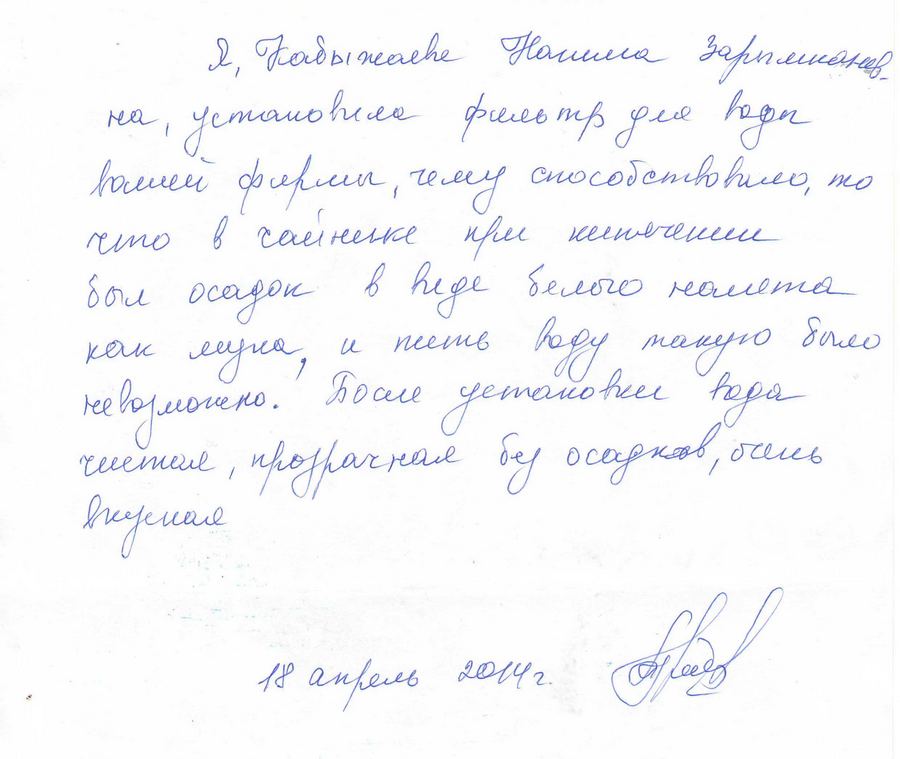 Я, Кабыжаева Нагима Зарылканов-
на, установила фильтр для воды
вашей фирмы, чему способствовило, то
что в чайнике при кипячении
был осадок в виде белого налета
как мука, и пить воду такую было
невозможно. После установки вода
чистая, прозрачная без осадков, очень
вкусная
18 апрель 2014г.